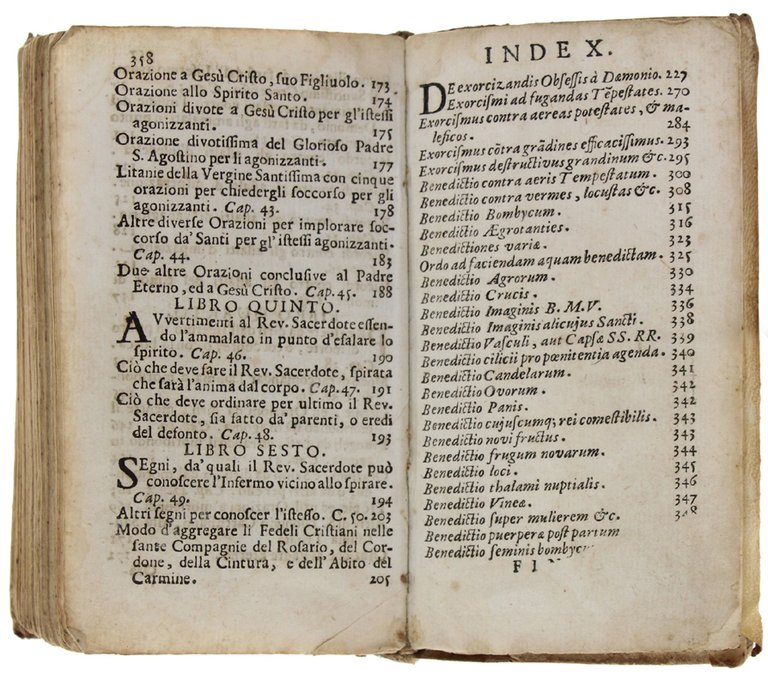 358
Orazione a Gesù Cristo, suo Figliuolo. 173
Orazione allo Spirito Santo. 174
Orazioni divote a Gesù Cristo per gl'istessi
agonizzanti. 175
Orazione divotissima del Glorioso Padre
S. Agostino per li agonizzanti. 177
Litanie della Vergine Santissima con cinque
orazioni per chiedergli soccorso per gli
agonizzanti. Cap. 43. 178
Altre diverse Orazioni per implorare soc-
corso da' Santi per gl'istessi agonizzanti.
Cap. 44. 183
Due altre Orazioni conclusive al Padre
Eterno, ed a Gesù Cristo. Cap. 45. 188
LIBRO QUINTO.
AVvertimenti al Rev. Sacerdote essen-
do l'ammalato in punto d'esalare lo
spirito. Cap. 46. 190
Ciò che deve fare il Rev. Sacerdote, spirata
che sarà l'anima dal corpo. Cap. 47. 191
Ciò che deve ordinare per ultimo il Rev.
Sacerdote, sia fatto da' parenti, o eredi
del defonto. Cap. 48. 193
LIBRO SESTO.
SEgni, da' quali il Rev. Sacerdote può
conoscere l'Infermo vicino allo spirare.
Cap. 49. 194
Altri segni per conoscer l'istesso. C. 50. 203
Modo d'aggregare li Fedeli Cristiani nelle
sante Compagnie del Rosario, del Cor-
done, della Cintura, e dell'Abito del
Carmine. 205
INDEX.
DE exorcizandis Obsessis à Dæmonio. 227
Exorcismi ad fugandas Tẽpestates. 270
Exorcismus contra aereas potestates, & ma-
leficos. 284
Exorcismus cõtra grãdines efficacissimus. 293
Exorcismus destructivus grandinum &c. 295
Benedictio contra aeris Tempestatum. 300
Benedictio contra vermes, locustas &c. 308
Benedictio Bombycum. 315
Benedictio Ægrotanties. 316
Benedictiones variæ. 323
Ordo ad faciendam aquam benedictam. 325
Benedictio Agrorum. 330
Benedictio Crucis. 334
Benedictio Imaginis B. M. V. 336
Benedictio Imaginis alicujus Sancti. 338
Benedictio Vasculi, aut Capsæ SS. RR. 339
Benedictio cilicii pro pœnitentia agenda. 340
Benedictio Candelarum. 341
Benedictio Ovorum. 342
Benedictio Panis. 342
Benedictio cujuscumq; rei comestibilis. 343
Benedictio novi fructus. 343
Benedictio frugum novarum. 344
Benedictio loci. 345
Benedictio thalami nuptialis. 346
Benedictio Vineæ. 347
Benedictio super mulierem &c. 348
Benedictio puerperæ post partum
Benedictio seminis bombyc
FIN